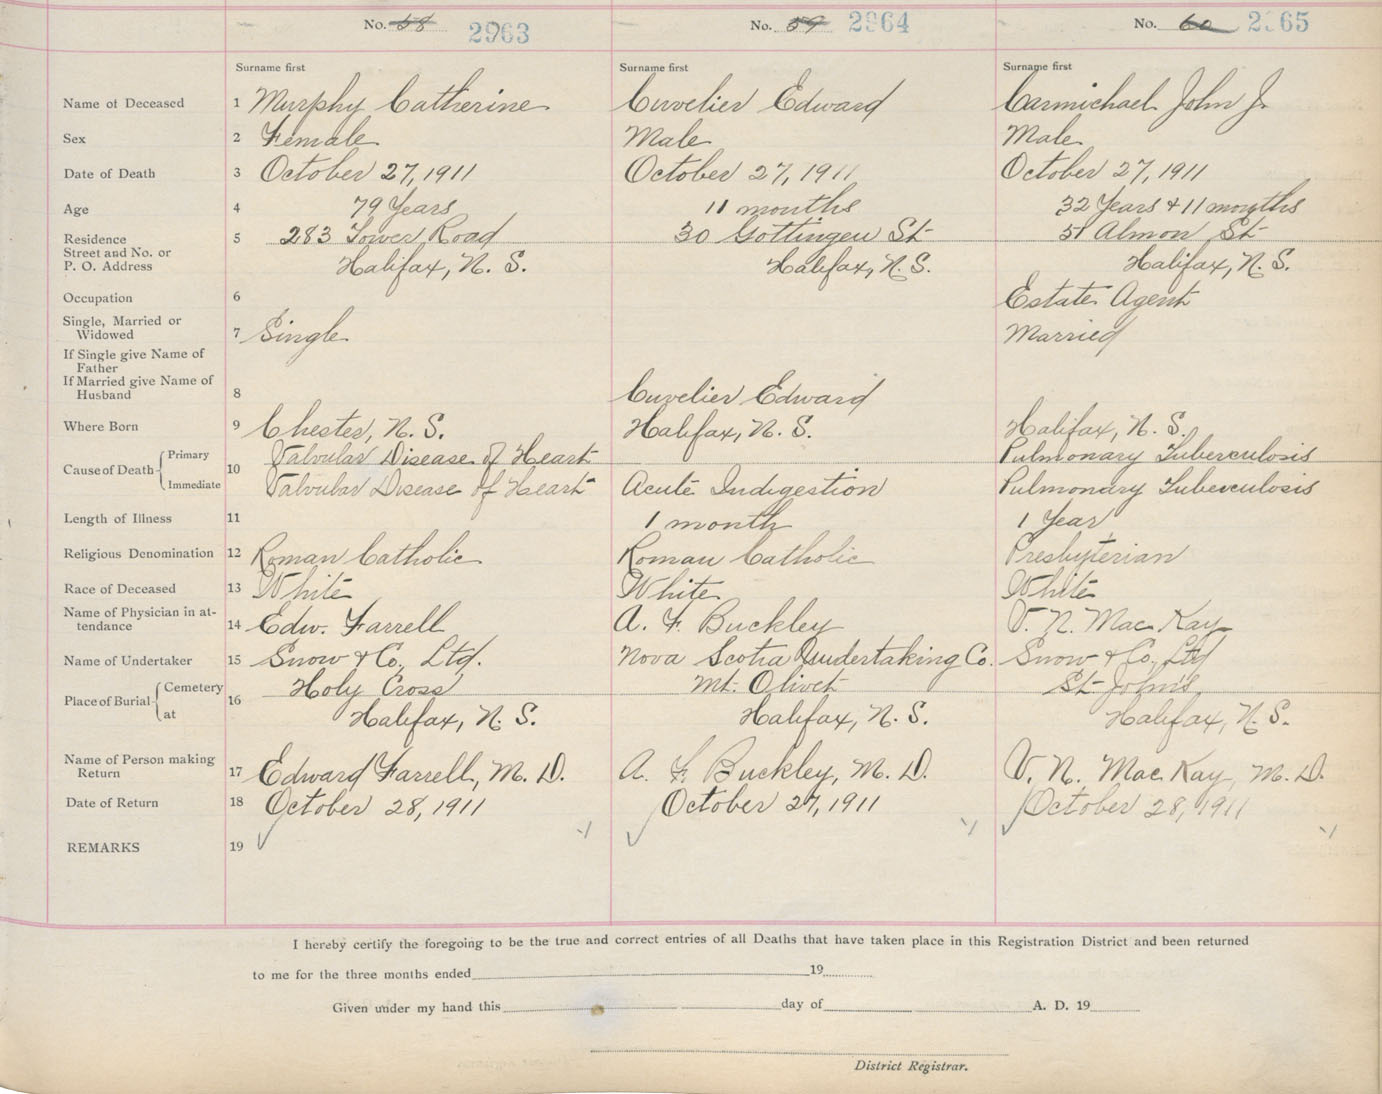 No. 58 2963 No. 59 2964 No. 60 2965
Surname first Surname first Surname first
Name of Deceased 1 Murphy Catherine Cuvelier Edward Carmichael John J.
Sex 2 Female Male Male
Date of Death 3 October 27, 1911 October 27, 1911 October 27, 1911
Age 4 79 Years 11 months 32 Years + 11 months
Residence 5 283 Tower Road 30 Gottingen St 51 Almon St
Street and No. or
P. O. Address Halifax, N. S. Halifax, N. S. Halifax, N. S.
Occupation 6 Estate Agent
Single, Married or
Widowed 7 Single Married
If Single give Name of
Father
If Married give Name of
Husband 8 Cuvelier Edward
Where Born 9 Chester, N. S. Halifax, N. S. Halifax, N. S.
Primary Valvular Disease of Heart Pulmonary Tuberculosis
Cause of Death 10
Immediate Valvular Disease of Heart Acute Indigestion Pulmonary Tuberculosis
Length of Illness 11 1 month 1 Year
Religious Denomination 12 Roman Catholic Roman Catholic Presbyterian
Race of Deceased 13 White White White
Name of Physician in at-
tendance 14 Edw. Farrell A. F. Buckley V. N. Mac Kay
Name of Undertaker 15 Snow & Co., Ltd. Nova Scotia Undertaking Co. Snow & Co., Ltd
Cemetery Holy Cross Mt. Olivet St. John's
Place of Burial 16
at Halifax, N. S. Halifax, N. S. Halifax, N. S.
Name of Person making
Return 17 Edward Farrell, M. D. A. F. Buckley, M. D. V. N. Mac Kay, M. D.
Date of Return 18 October 28, 1911 October 27, 1911 October 28, 1911
REMARKS 19
I hereby certify the foregoing to be the true and correct entries of all Deaths that have taken place in this Registration District and been returned
to me for the three months ended 19
Given under my hand this day of A. D. 19
District Registrar.